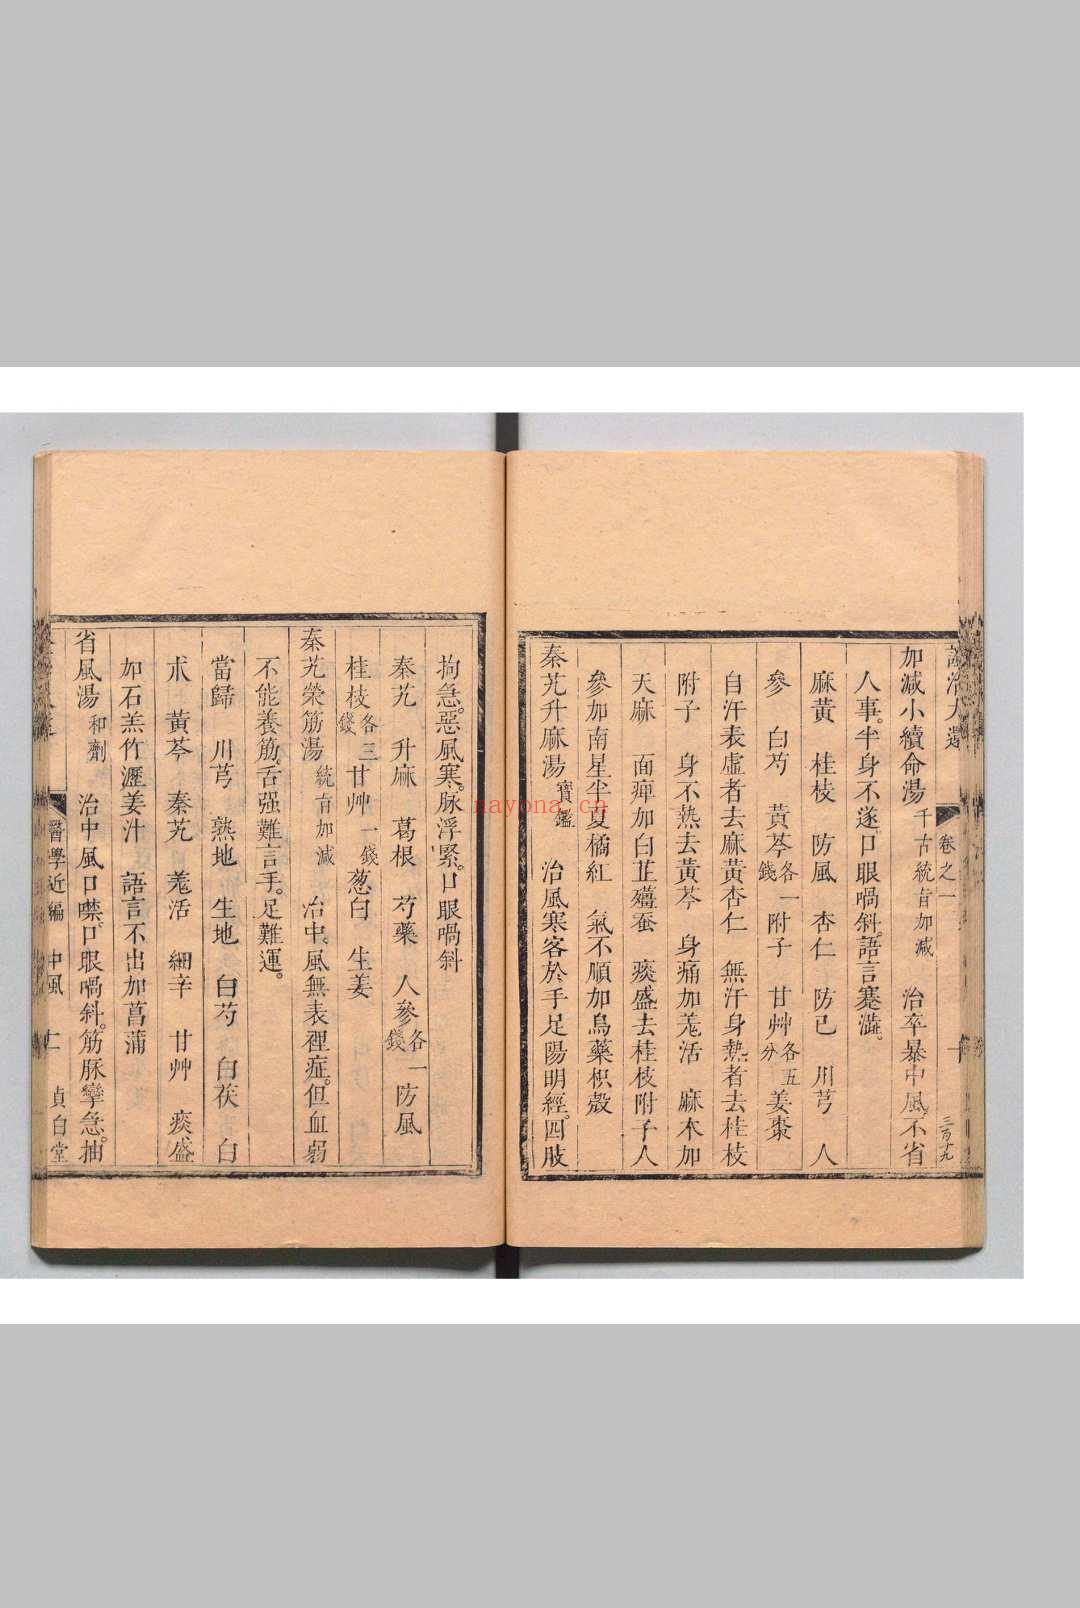 卷之一
三百十九
加減小續命湯 千古統旨加減 治卒暴中風。不省
人事。半身不遂。口眼喎斜。語言蹇澁。
麻黃 桂枝 防風 杏仁 防己 川芎 人
參 白芍 黃芩各一錢 附子 甘艸各五分 姜棗
自汗表虛者去麻黃杏仁 無汗身熱者去桂枝
附子 身不熱去黃芩 身痛加羗活 麻木加
天麻 面癉加白芷殭蚕 痰盛去桂枝附子人
參加南星半夏橘紅 氣不順加烏藥枳殼
秦艽升麻湯 寶鑑 治風寒客於手足陽明經。四肢
拘急。惡風寒。脉浮緊。口眼喎斜
秦艽 升麻 葛根 芍藥 人參各一錢 防風
桂枝各三錢 甘艸一錢 葱白 生姜
秦艽榮筋湯 統旨加減 治中風無表裡症。但血弱
不能養筋。舌强難言。手足難運。
當歸 川芎 熟地 生地 白芍 白茯 白
朮 黃芩 秦艽 羗活 細辛 甘艸 痰盛
加石羔竹瀝姜汁 語言不出加菖蒲
省風湯 和劑 治中風口噤。口眼喎斜。筋脉攣急。抽
醫學近編 中風 二 貞白堂
nayona.cn